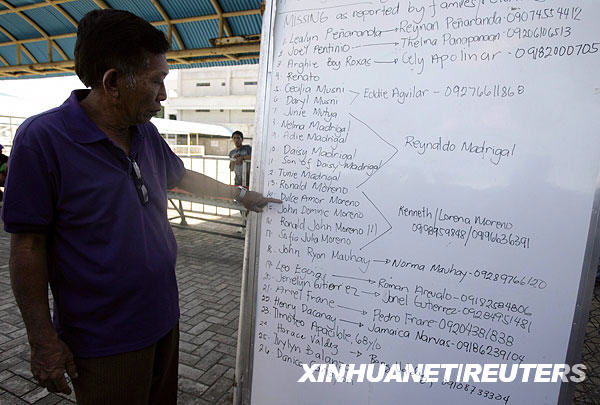 MISSING as reported by families/relatives
1. Lealyn Peñaranda → Reynan Peñaranda 09074554412
2. Joel Pentinio → Thelma Panopanaan - 09206106513
3. Arghie Boy Roxas → Cely Apolinar - 09182000705
4. Renato
5. Cecilia Musni Eddie Aguilar - 09276611868
6. Daryl Musni
7. Jinie Mutya
8. Nelma Madrigal
9. Adie Madrigal Reynaldo Madrigal
10. Daisa Madrigal
11. Son of Daisy Madrigal
12. Tunie Madrigal
13. Ronald Moreno
14. Dulce Amor Moreno
15. John Dominic Moreno Kenneth/Lorena Moreno
16. Ronald John Moreno III
17. Sofia Julia Moreno
18. John Ryon Mauhay → Norma Mauhay - 09289766120
19. Leo → Roman Arevalo - 09182584806
20. Jenelyn Gutierrez → Jonel Gutierrez - 09284951481
21. Arnel Frane → Pedro Frane - 09204381838
22. Henry Dacanay → Jamaica Narvas - 09186239104
23. Timoteo Apacible, 68 y/o
24. Horace Valdez
25.
26. Danica 09108733304
XINHUANET/REUTERS